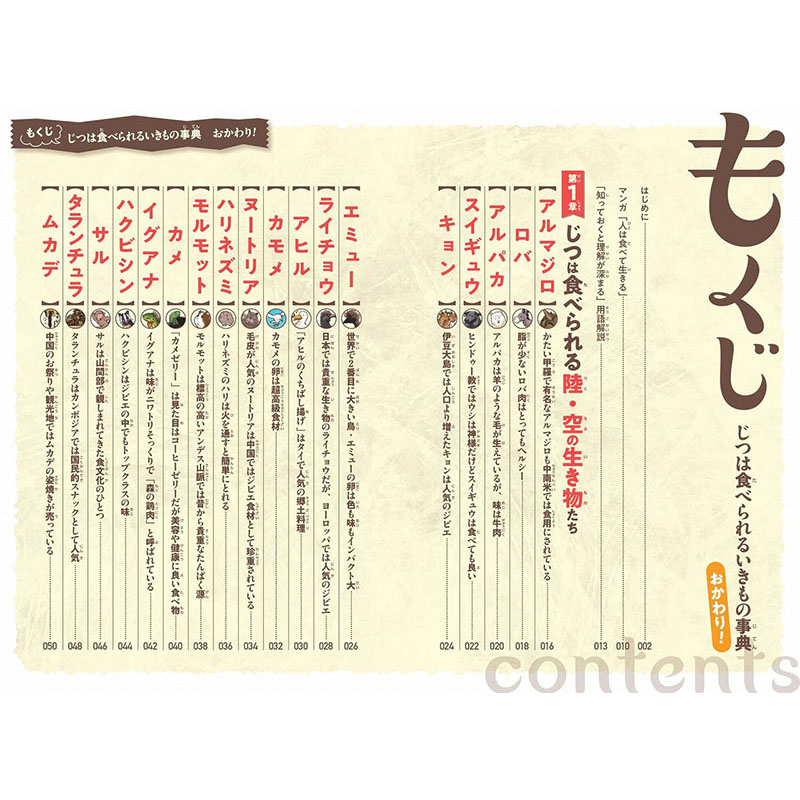 もくじ
じつは食べられるいきもの事典
おかわり!
contents
はじめに 002
マンガ「人は食べて生きる」 010
「知っておくと理解が深まる」用語解説 013
第1章 じつは食べられる陸・空の生き物たち
【アルマジロ】かたい甲羅で有名なアルマジロも中南米では食用にされている 016
【ロバ】脂が少ないロバ肉はとってもヘルシー 018
【アルパカ】アルパカは羊のような毛が生えているが、味は牛肉 020
【スイギュウ】ヒンドゥー教ではウシは神様だけどスイギュウは食べても良い 022
【キョン】伊豆大島では人口より増えたキョンは人気のジビエ 024
もくじ じつは食べられるいきもの事典 おかわり!
【エミュー】世界で2番目に大きい鳥・エミューの卵は色も味もインパクト大 026
【ライチョウ】日本では貴重な生き物のライチョウだが、ヨーロッパでは人気のジビエ 028
【アヒル】「アヒルのくちばし揚げ」はタイで人気の郷土料理 030
【カモメ】カモメの卵は超高級食材 032
【ヌートリア】毛皮が人気のヌートリアは中国ではジビエ食材として珍重されている 034
【ハリネズミ】ハリネズミのハリは火を通すと簡単にとれる 036
【モルモット】モルモットは標高の高いアンデス山脈では昔から貴重なたんぱく源 038
【カメ】「カメゼリー」は見た目はコーヒーゼリーだが美容や健康に良い食べ物 040
【イグアナ】イグアナは味がニワトリそっくりで「森の鶏肉」と呼ばれている 042
【ハクビシン】ハクビシンはジビエの中でもトップクラスの味 044
【サル】サルは山間部で親しまれてきた食文化のひとつ 046
【タランチュラ】タランチュラはカンボジアでは国民的スナックとして人気 048
【ムカデ】中国のお祭りや観光地ではムカデの姿焼きが売っている 050